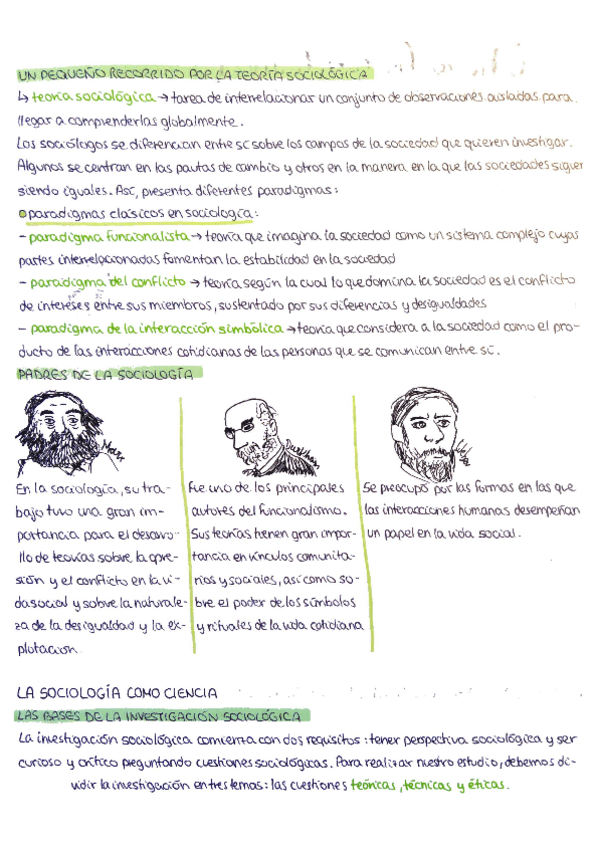 UN PEQUEÑO RECORRIDO POR LA TEORÍA SOCIOLÓGICA
↳ teoría sociológica → tarea de interrelacionar un conjunto de observaciones aisladas para
llegar a comprenderlas globalmente.
Los sociólogos se diferencian entre sí sobre los campos de la sociedad que quieren investigar.
Algunos se centran en las pautas de cambio y otros en la manera en la que las sociedades siguen
siendo iguales. Así, presenta diferentes paradigmas:
paradigmas clásicos en sociología:
- paradigma funcionalista → teoría que imagina la sociedad como un sistema complejo cuyas
partes interrelacionadas fomentan la estabilidad en la sociedad
- paradigma del conflicto → teoría según la cual lo que domina la sociedad es el conflicto
de intereses entre sus miembros, sustentado por sus diferencias y desigualdades
- paradigma de la interacción simbólica → teoría que considera a la sociedad como el pro-
ducto de las interacciones cotidianas de las personas que se comunican entre sí.
PADRES DE LA SOCIOLOGÍA
Marx
En la sociología, su tra-
bajo tuvo una gran im-
portancia para el desarro-
llo de teorías sobre la opre-
sión y el conflicto en la vi-
da social y sobre la naturale-
za de la desigualdad y la ex-
plotación
Durkheim
Fue uno de los principales
autores del funcionalismo.
Sus teorías tienen gran impor-
tancia en vínculos comunita-
rios y sociales, así como so-
bre el poder de los símbolos
y rituales de la vida cotidiana
Se preocupó por las formas en las que
las interacciones humanas desempeñan
un papel en la vida social.
LA SOCIOLOGÍA COMO CIENCIA
LAS BASES DE LA INVESTIGACIÓN SOCIOLÓGICA
La investigación sociológica comienza con dos requisitos: tener perspectiva sociológica y ser
curioso y crítico preguntando cuestiones sociológicas. Para realizar nuestro estudio, debemos di-
vidir la investigación en tres temas: las cuestiones teóricas, técnicas y éticas.